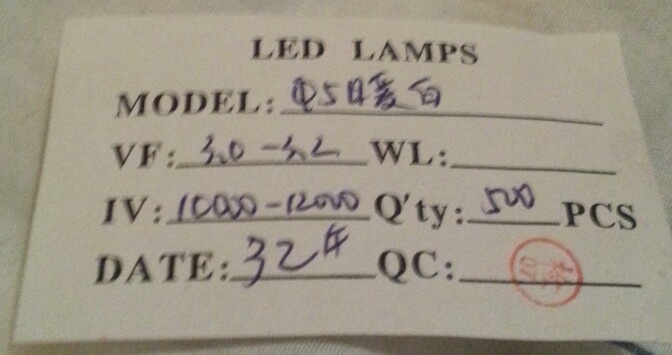 LED LAMPS
MODEL: Φ5日暖白
VF: 3.0-3.2 WL:
IV: 10000-12000 Q'ty: 500 PCS
DATE: 32# QC: 检07